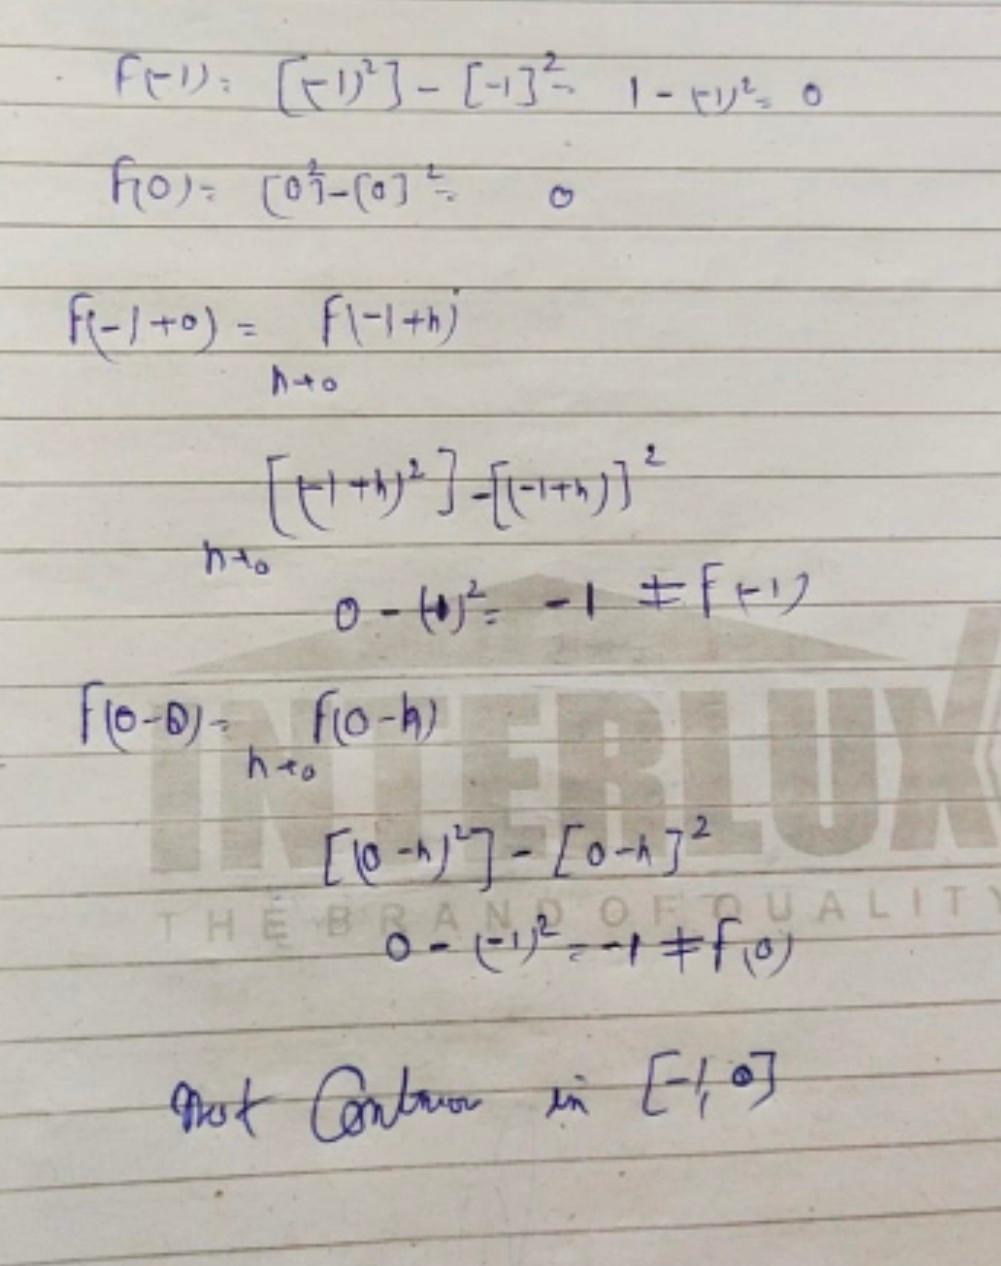 F(-1) = [(-1)²] - [-1]² = 1 - (-1)² = 0
f(0) = [0²] - [0]² = 0
f(-1+0) = f(-1+h)
h→0
[(-1+h)²] - [(-1+h)]²
h→0
0 - (-1)² = -1 ≠ F(-1)
f(0-0) = f(0-h)
h→0
[(0-h)²] - [0-h]²
0 - (-1)² = -1 ≠ f(0)
not in [-1, 0]
INTERLUX
THE BRAND OF QUALITY